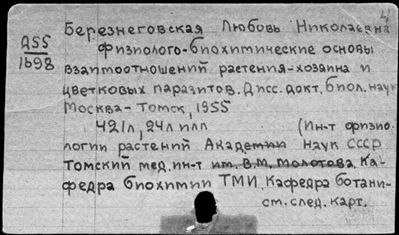 4
Березнеговская Любовь Николаевна
Д55
1698
физиолого-биохимические основы
взаимоотношений растения-хозяина и
цветковых паразитов. Дисс. докт. биол. наук
Москва-Томск, 1955
421л, 24л илл (Ин-т физио-
логии растений Академии наук СССР
Томский мед. ин-т им. В.М. Молотова. Ка-
федра биохимии ТМИ. Кафедра ботани-
см. след. карт.